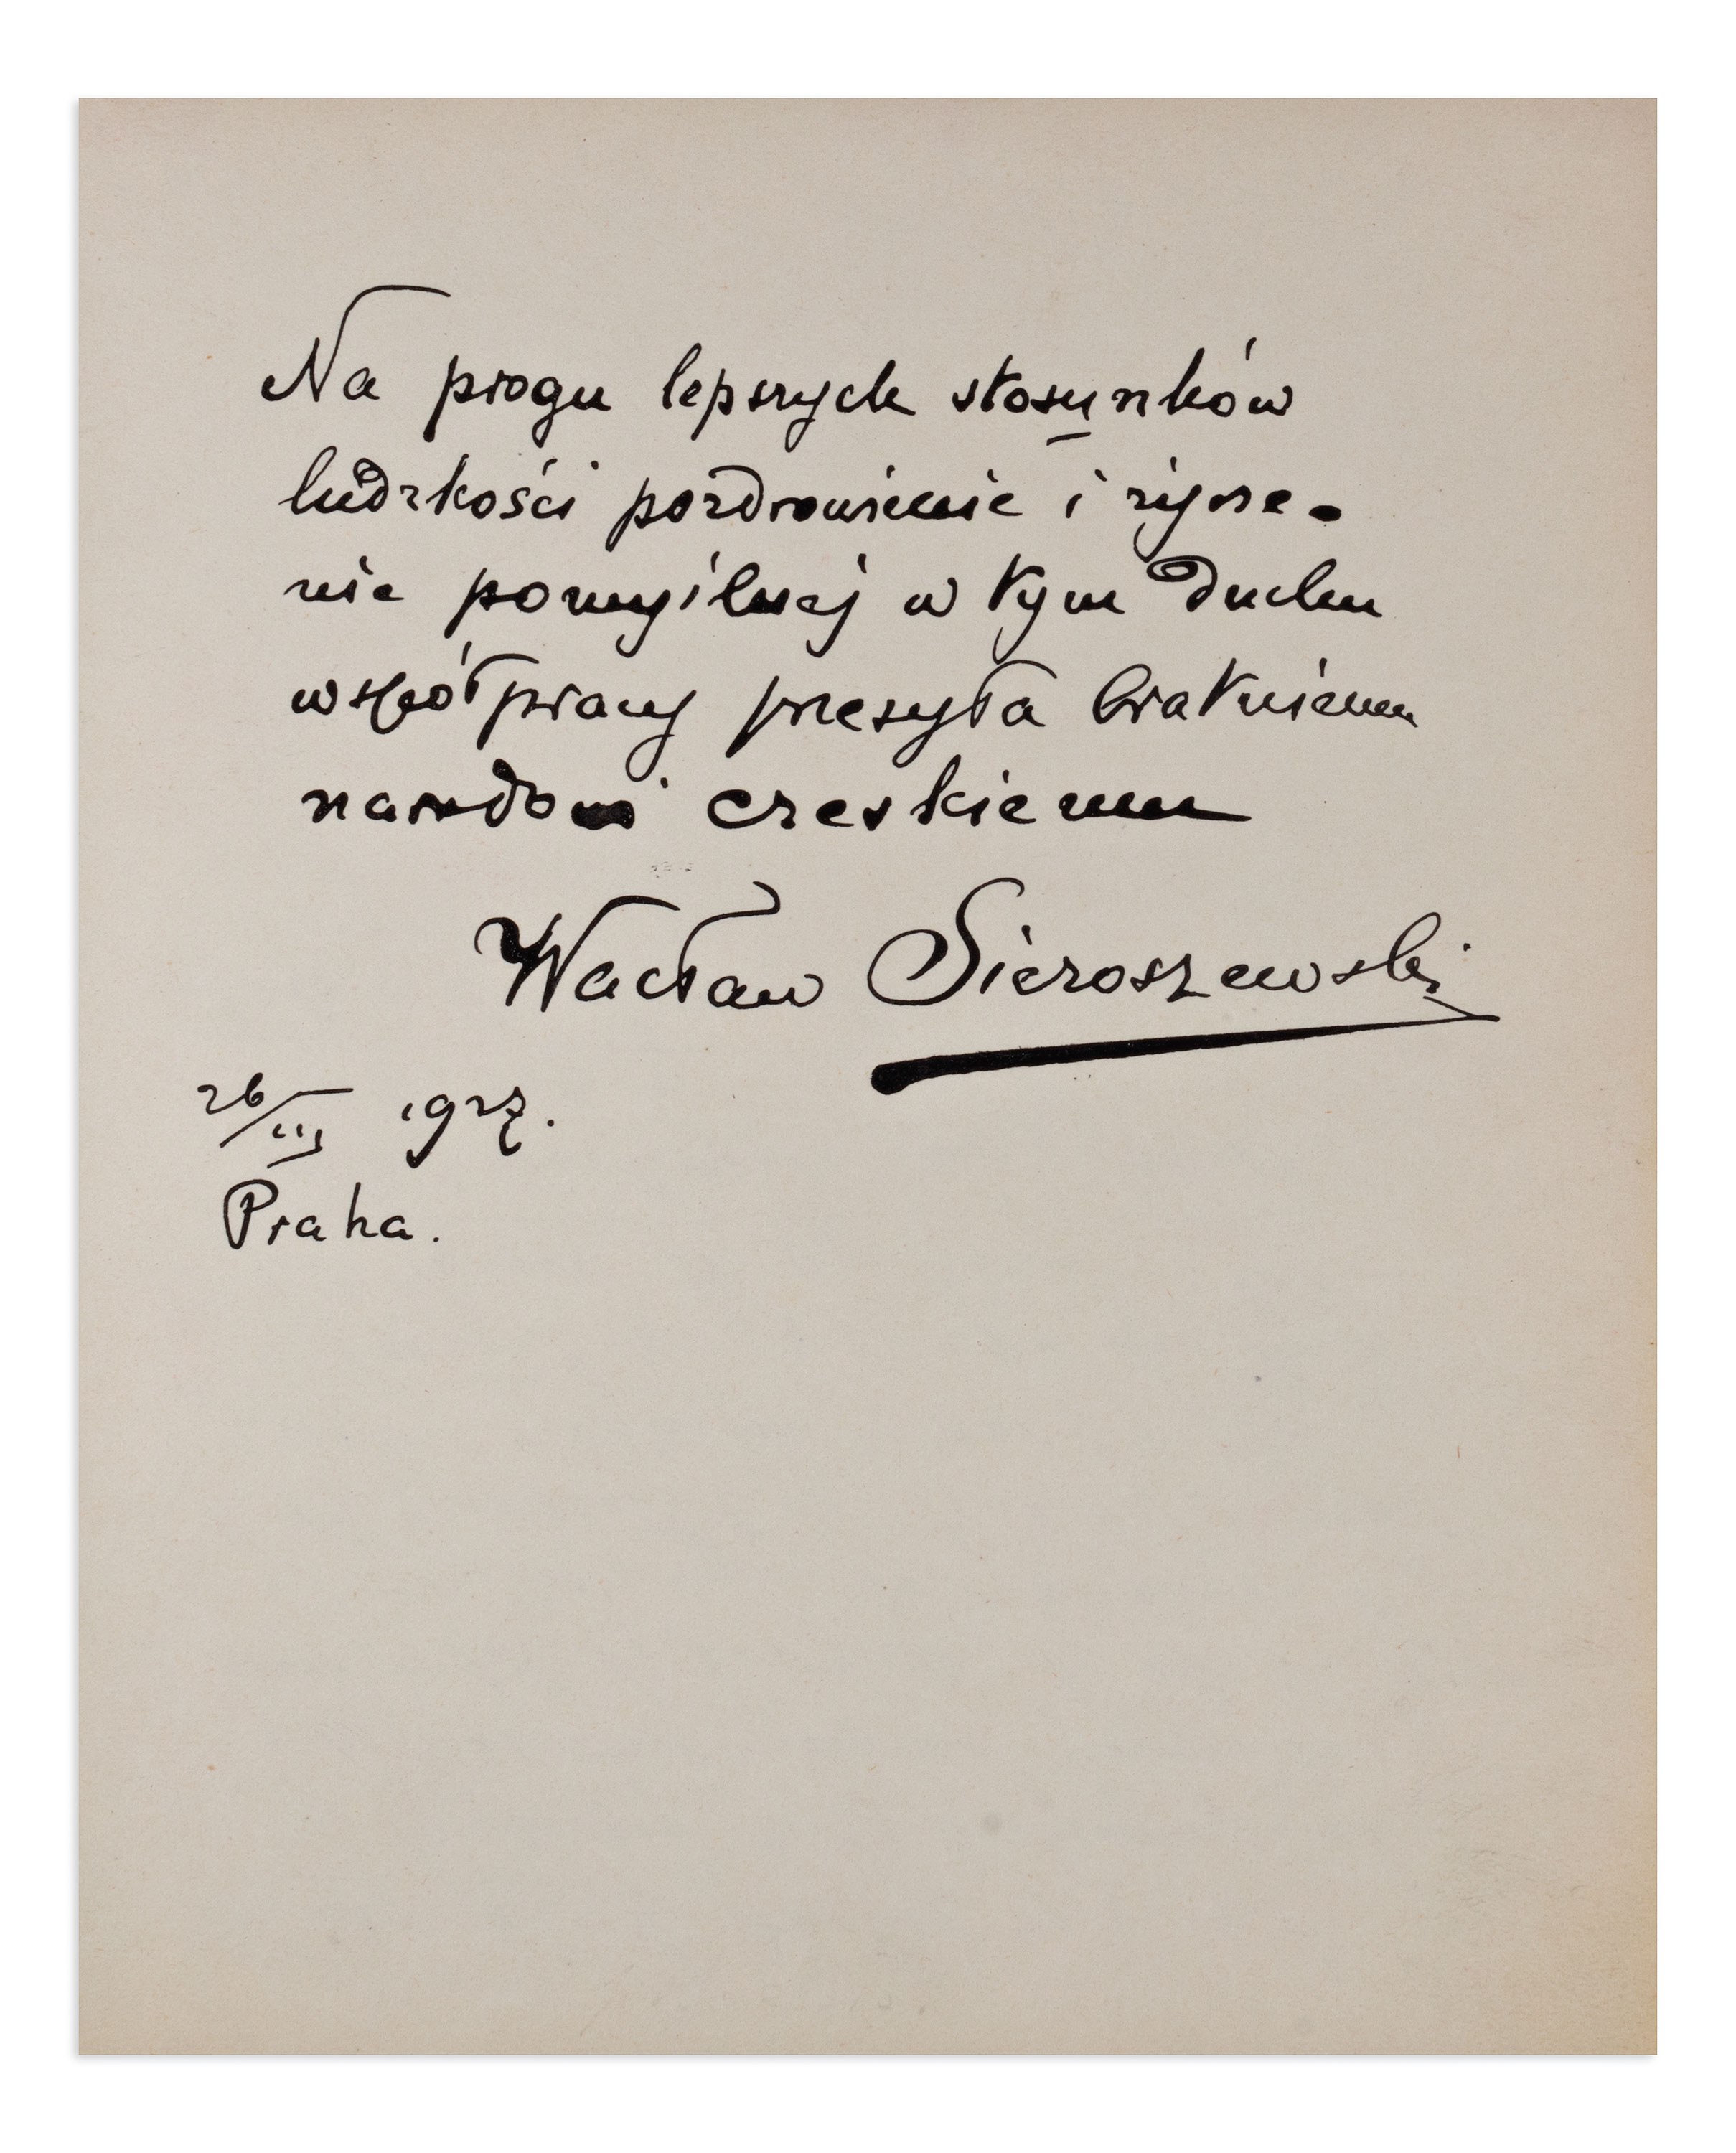 Na progu lepszych stosunków
ludzkości pozdrowienie i życze-
nie pomyślnej w tym duchu
współpracy przesyła bratniemu
narodowi czeskiemu
Wacław Sieroszewski
26/III 1927.
Praha.